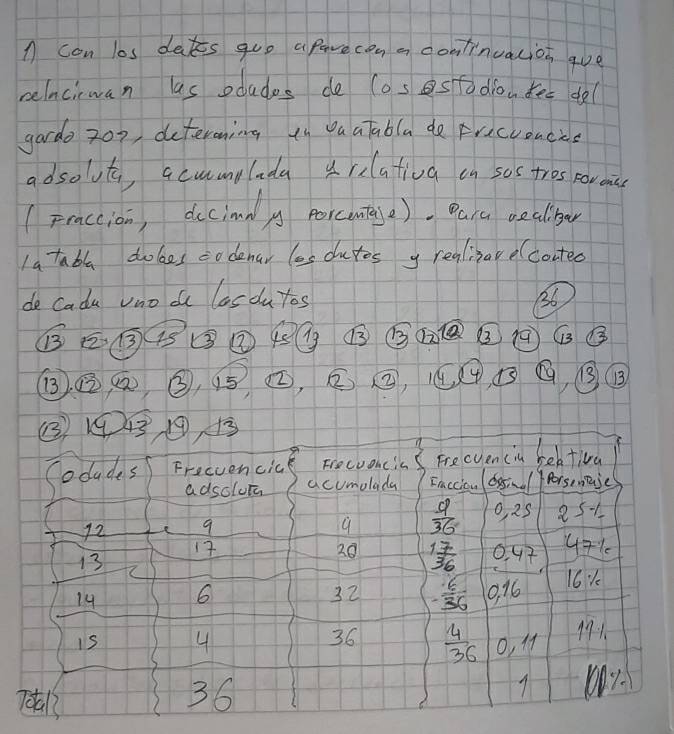 1) con los dates quo aparecen a continuación que
relacionan las edudes de los estodiontes del
gardo 702, determina en una Tabla de Frecuencias
adsoluta, acumulada y relativa en sus tres Formas
(Fracción, decimal y porcentaje). Para realizar
la Tabla debes ordenar los datos y realizar el conteo
de cada uno de los datos 36
13 12 13 15 13 12 15 13 13 13 12 12 13 14 13 13
13, 12, 12, 13, 15, 12, 12, 12, 14, 14, 13, 14, 13, 13
13, 14, 13, 14, 13
edades Frecuencias Frecuencias Frecuencia Relativa
adsoluta acumulada Fraccion Desimal Porsentaje
12 9 9 9/36 0,25 25%
13 17 26 17/36 0,47 47%
14 6 32 6/36 0,16 16%
15 4 36 4/36 0,11 11%
Total 36 1 100%